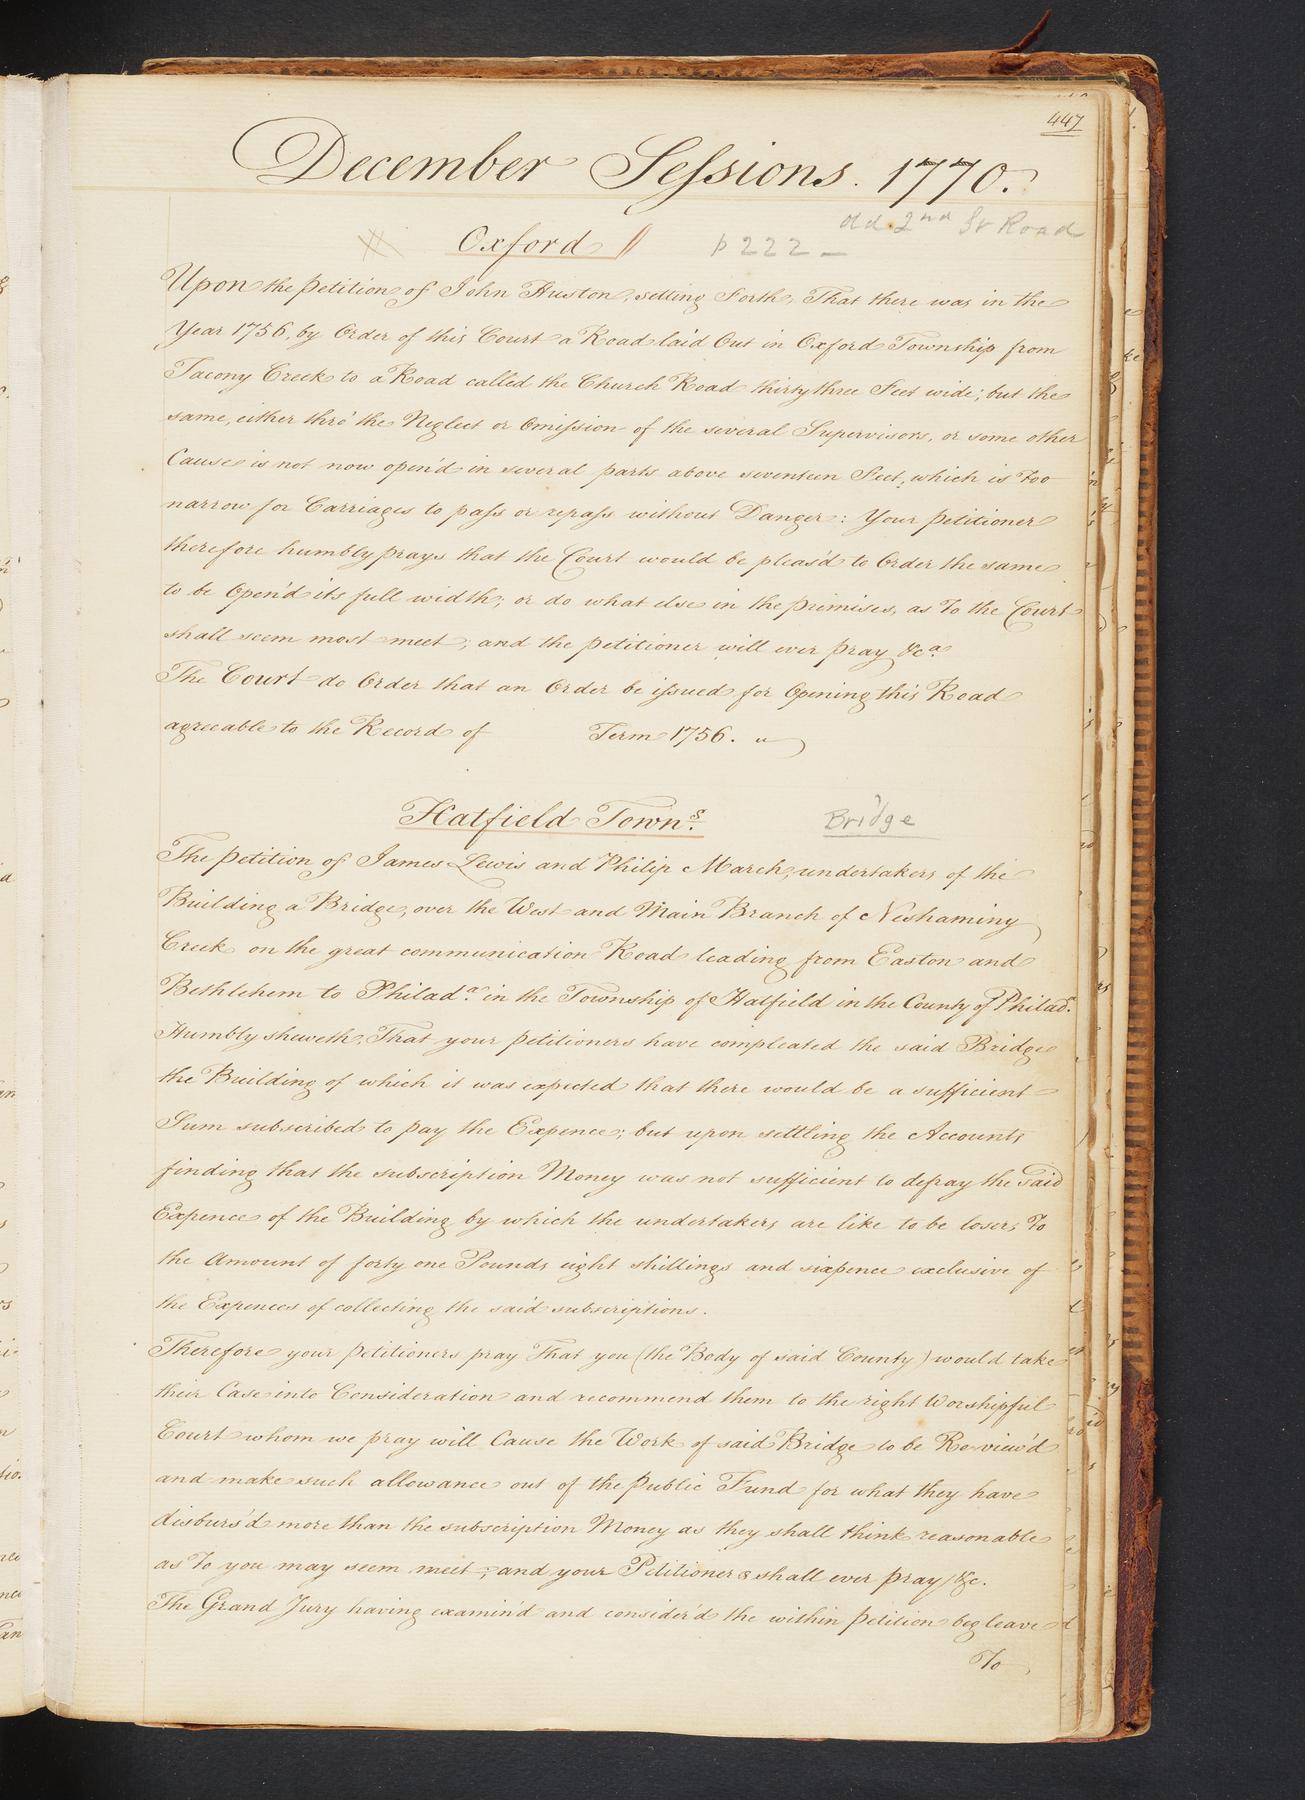 447
December Sessions. 1770.
Old 2nd St Road
Oxford
p 222 -
Upon the petition of John Huston, setting Forth, That there was in the
Year 1756, by Order of this Court a Road laid Out in Oxford Township from
Tacony Creek to a Road called the Church Road thirty three Feet wide; but the
same, either thro' the Neglect or Omission of the several Supervisors, or some other
Cause is not now open'd in several parts above seventeen Feet, which is Too
narrow for Carriages to pass or repass without Danger: Your petitioner
therefore humbly prays that the Court would be pleas'd to Order the same
to be Open'd its full width; or do what else in the premises, as To the Court
shall seem most meet; and the petitioner will ever pray &ca.
The Court do Order that an Order be issued for Opening this Road
agreeable to the Record of Term 1756.
Hatfield Towns.
Bridge
The petition of James Lewis and Philip March, undertakers of the
Building a Bridge, over the West and Main Branch of Neshaminy
Creek on the great communication Road leading from Easton and
Bethlehem to Philada. in the Township of Hatfield in the County of Philada.
Humbly sheweth, That your petitioners have compleated the said Bridge
the Building of which it was expected that there would be a sufficient
Sum subscribed to pay the Expence; but upon settling the Accounts
finding that the subscription Money was not sufficient to defray the said
Expence of the Building by which the undertakers are like to be losers To
the Amount of forty one Pounds eight shillings and sixpence exclusive of
the Expences of collecting the said subscriptions.
Therefore your petitioners pray That you (the Body of said County) would take
their Case into Consideration and recommend them to the right Worshipful
Court whom we pray will Cause the Work of said Bridge to be Re-view'd
and make such allowance out of the Public Fund for what they have
disburs'd more than the subscription Money as they shall think reasonable
as To you may seem meet; and your Petitioners shall ever pray, &c.
The Grand Jury having examin'd and consider'd the within petition beg leave
To